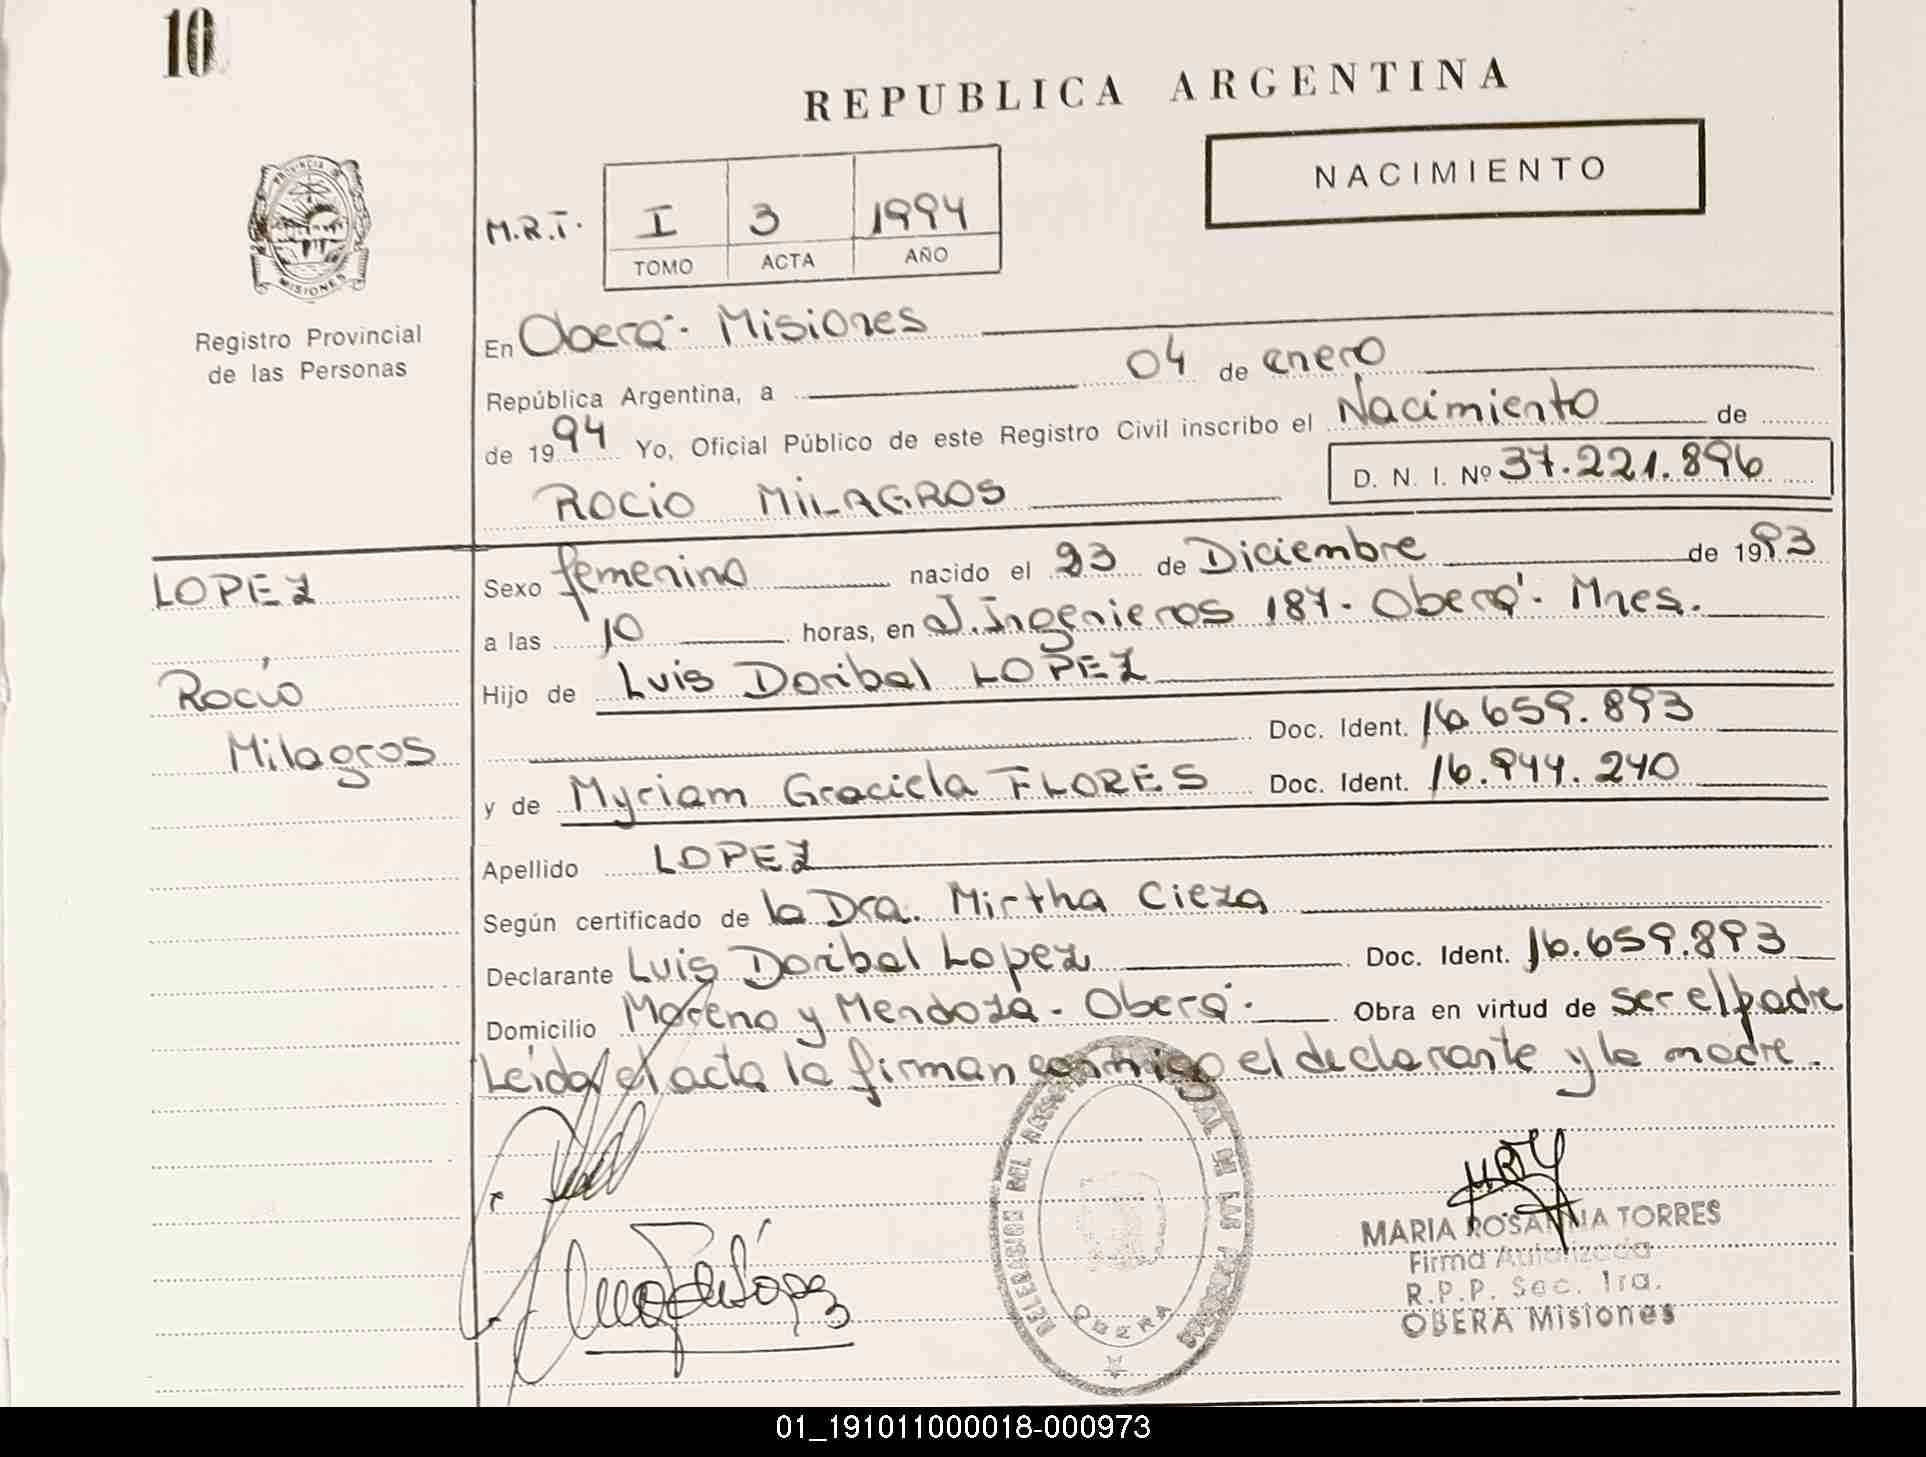 10
REPUBLICA ARGENTINA
NACIMIENTO
PROVINCIA DE
MISIONES
Registro Provincial
de las Personas
M.R.T. I 3 1994
TOMO ACTA AÑO
En Oberá - Misiones
República Argentina, a 04 de enero
de 1994 Yo, Oficial Público de este Registro Civil inscribo el Nacimiento de
ROCIO MILAGROS D. N. I. Nº 37.221.896
LOPEZ
Rocío
Milagros
Sexo femenino nacido el 23 de Diciembre de 1993
a las 10 horas, en J. Ingenieros 187 - Oberá - Mnes.
Hijo de Luis Doribal LOPEZ
Doc. Ident. 16.659.893
y de Myriam Graciela FLORES Doc. Ident. 16.944.240
Apellido LOPEZ
Según certificado de la Dra. Mirtha Cieza
Declarante Luis Doribal Lopez Doc. Ident. 16.659.893
Domicilio Moreno y Mendoza - Oberá - Obra en virtud de ser el padre
Leída el acta la firman conmigo el declarante y la madre.
OBERA
MARIA ROSANNA TORRES
Firma Autorizada
R.P.P. Sec. 1ra.
OBERA Misiones
01_191011000018-000973